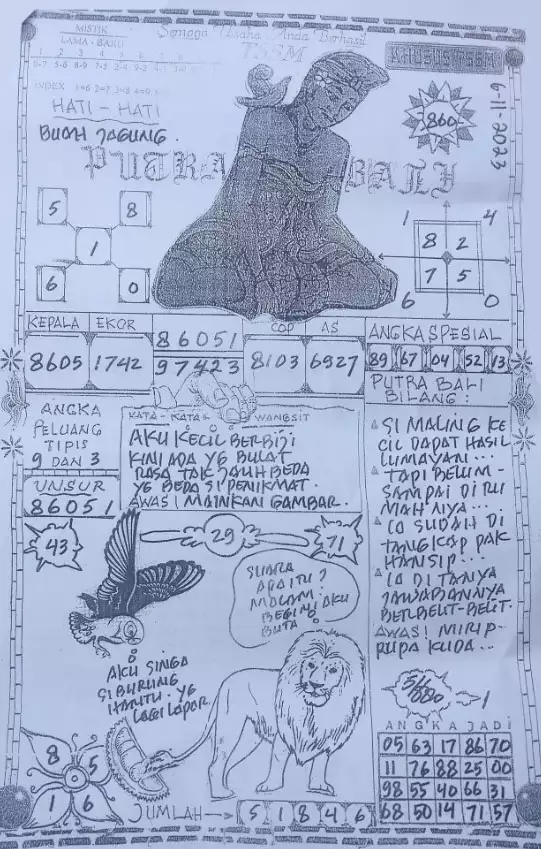 MISTIK
LAMA - BARU
Semoga Usaha Anda Berhasil
TSSM
KHUSUS TSSM
INDEX
HATI - HATI
BUAH JAGUNG.
860
6-11-2023
PUTRA BALI
5 8
1
6 0
1 4
8 2
7 5
6 0
KEPALA EKOR
8605 1742
86051
97423
COP AS
8103 6927
ANGKA SPESIAL
89 67 04 52 13
ANGKA
PELUANG
TIPIS
9 DAN 3
UNSUR
86051
KATA - KATA WANGSIT
AKU KECIL BERBIJI
KINI ADA YG BULAT
RASA TAK JAUH BEDA
YG BEDA SI PENIKMAT.
AWAS! MAINKAN GAMBAR.
PUTRA BALI
BILANG :
SI MALING KE
CIL DAPAT HASIL
LUMAYAN...
TAPI BELUM-
SAMPAI DI RU
MAH NYA...
IA SUDAH DI
TANGKAP PAK
HANSIP...
IA DI TANYA
JAWABANNYA
BERBELIT-BELIT.
AWAS! MIRIP-
RUPA KUDA...
43
29
71
SUARA
APA ITU?
MALAM.
BEGINI AKU
BUTA
AKU SINGA
SI BURUNG
HANTU. YG
LAGI LAPAR.
8 5
1 6
JUMLAH
5 1 8 4 6
ANGKA JADI
05 63 17 86 70
11 76 88 25 00
98 55 40 66 31
68 50 14 71 57